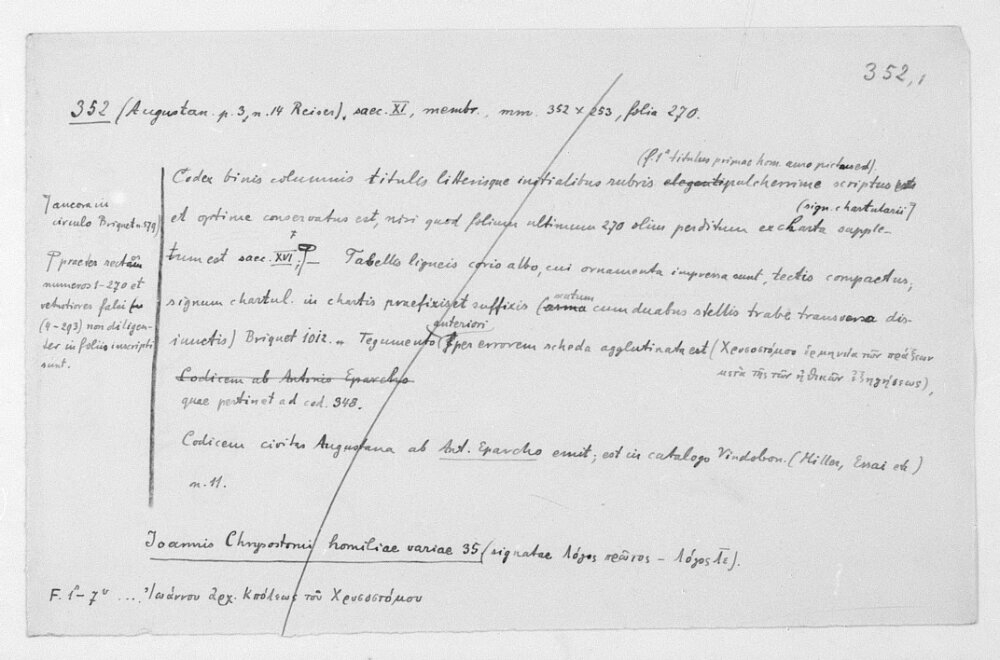 352,1
352 (Augustan. p. 3, n. 14 Reiser), saec. XI, membr., mm. 352 x 253, folia 270.
(f. 1r titulus primae hom. auro pictus est).
Codex binis columnis titulis litterisque initialibus rubris eleganter pulcherrime scriptus est
(sign. chartularii ⌉
et optime conservatus est, nisi quod folium ultimum 270 olim perditum ex charta supple-
tum est saec. XVI; Tabellis ligneis corio albo, cui ornamenta impressa sunt, tectis compactus;
signum chartul. in chartis praefixis et suffixis (arma cum duabus stellis trabe transversa dis-
iunctis) Briquet 1012. Tegumento anteriori per errorem scheda agglutinata est (Χρυσοστόμου ἑρμηνεία τῶν πράξεων
μετὰ τῆς τῶν ἠθικῶν ἐξηγήσεως),
Codicem ab Antonio Eparcho
quae pertinet ad cod. 348.
Codicem civitas Augustana ab Ant. Eparcho emit; est in catalogo Vindobon. (Miller, Essai etc)
n. 11.
⌉ ancora in
circulo Briquet n. 579)
praeter rectam
numeros 1-270 et
vetustiores falsi
(4-293) non diligen-
ter in foliis inscripti
sunt.
Ioannis Chrysostomi homiliae variae 35 (signatae λόγος πρῶτος - λόγος λε).
F. 1r-7v .... Ἰωάννου ἀρχ. Κπόλεως τοῦ Χρυσοστόμου